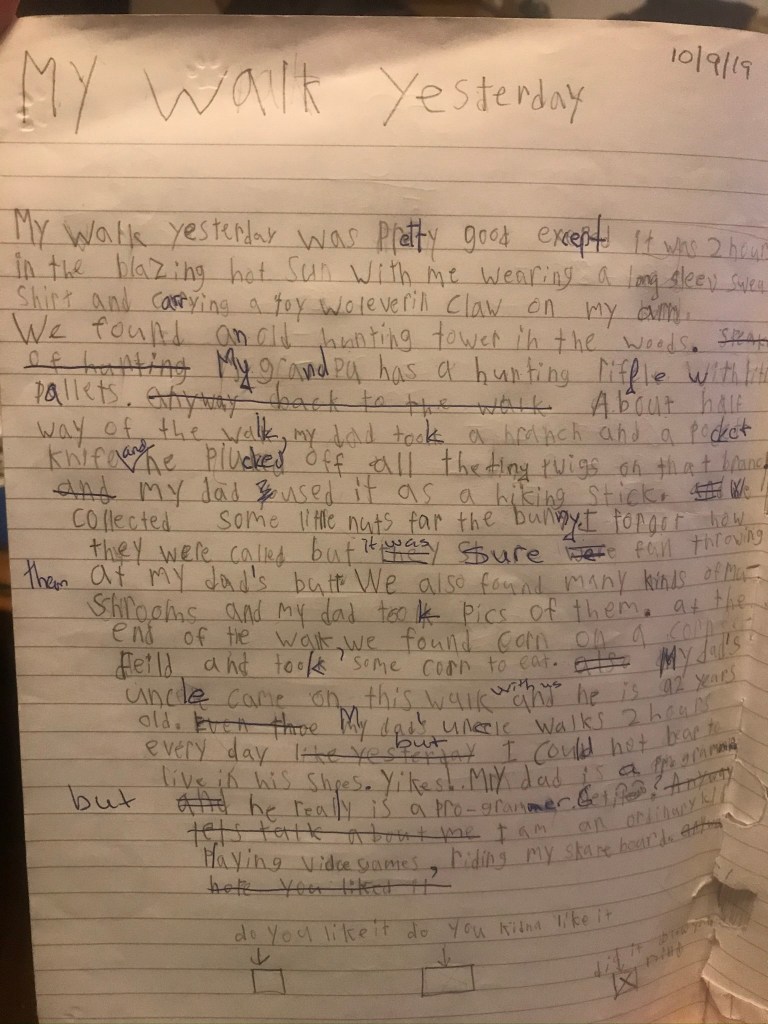 10/9/19
My Walk Yesterday
My walk yesterday was pretty good except it was 2 hour
in the blazing hot sun with me wearing a long sleev swea
shirt and carrying a toy woleverin claw on my arm.
We found an old hunting tower in the woods.
of hunting My grandpa has a hunting riffle with
pallets. anyway back to the walk About half
way of the walk, my dad took a branch and a pocket
knife and he plucked off all the ting twigs on that branch
and my dad used it as a hiking stick. We
collected some little nuts far the bunny. I forgot how
they were called but it was sure fan throwing
them at my dad's butt We also found many kinds of mu-
shrooms and my dad took pics of them. at the
end of the walk, we found corn on a corn
feild and took some corn to eat. My dad's
uncle came on this walk with us and he is 92 years
old. Even thoe My dad's uncle walks 2 hours
every day like yesterday but I could not bear to
live in his shoes. Yikes! My dad is a programmer
but and he really is a pro-grammer. Get it? Anyway
lets talk about me I am an ordinary
Playing videogames, riding my skateboard.
hope you liked it
do you like it do you kidna like it